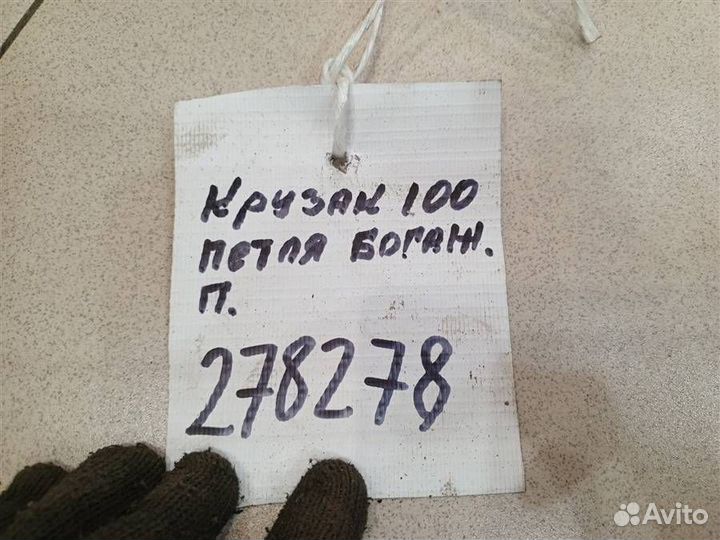 Крузак 100
петля богаж.
П.
278278
Avito